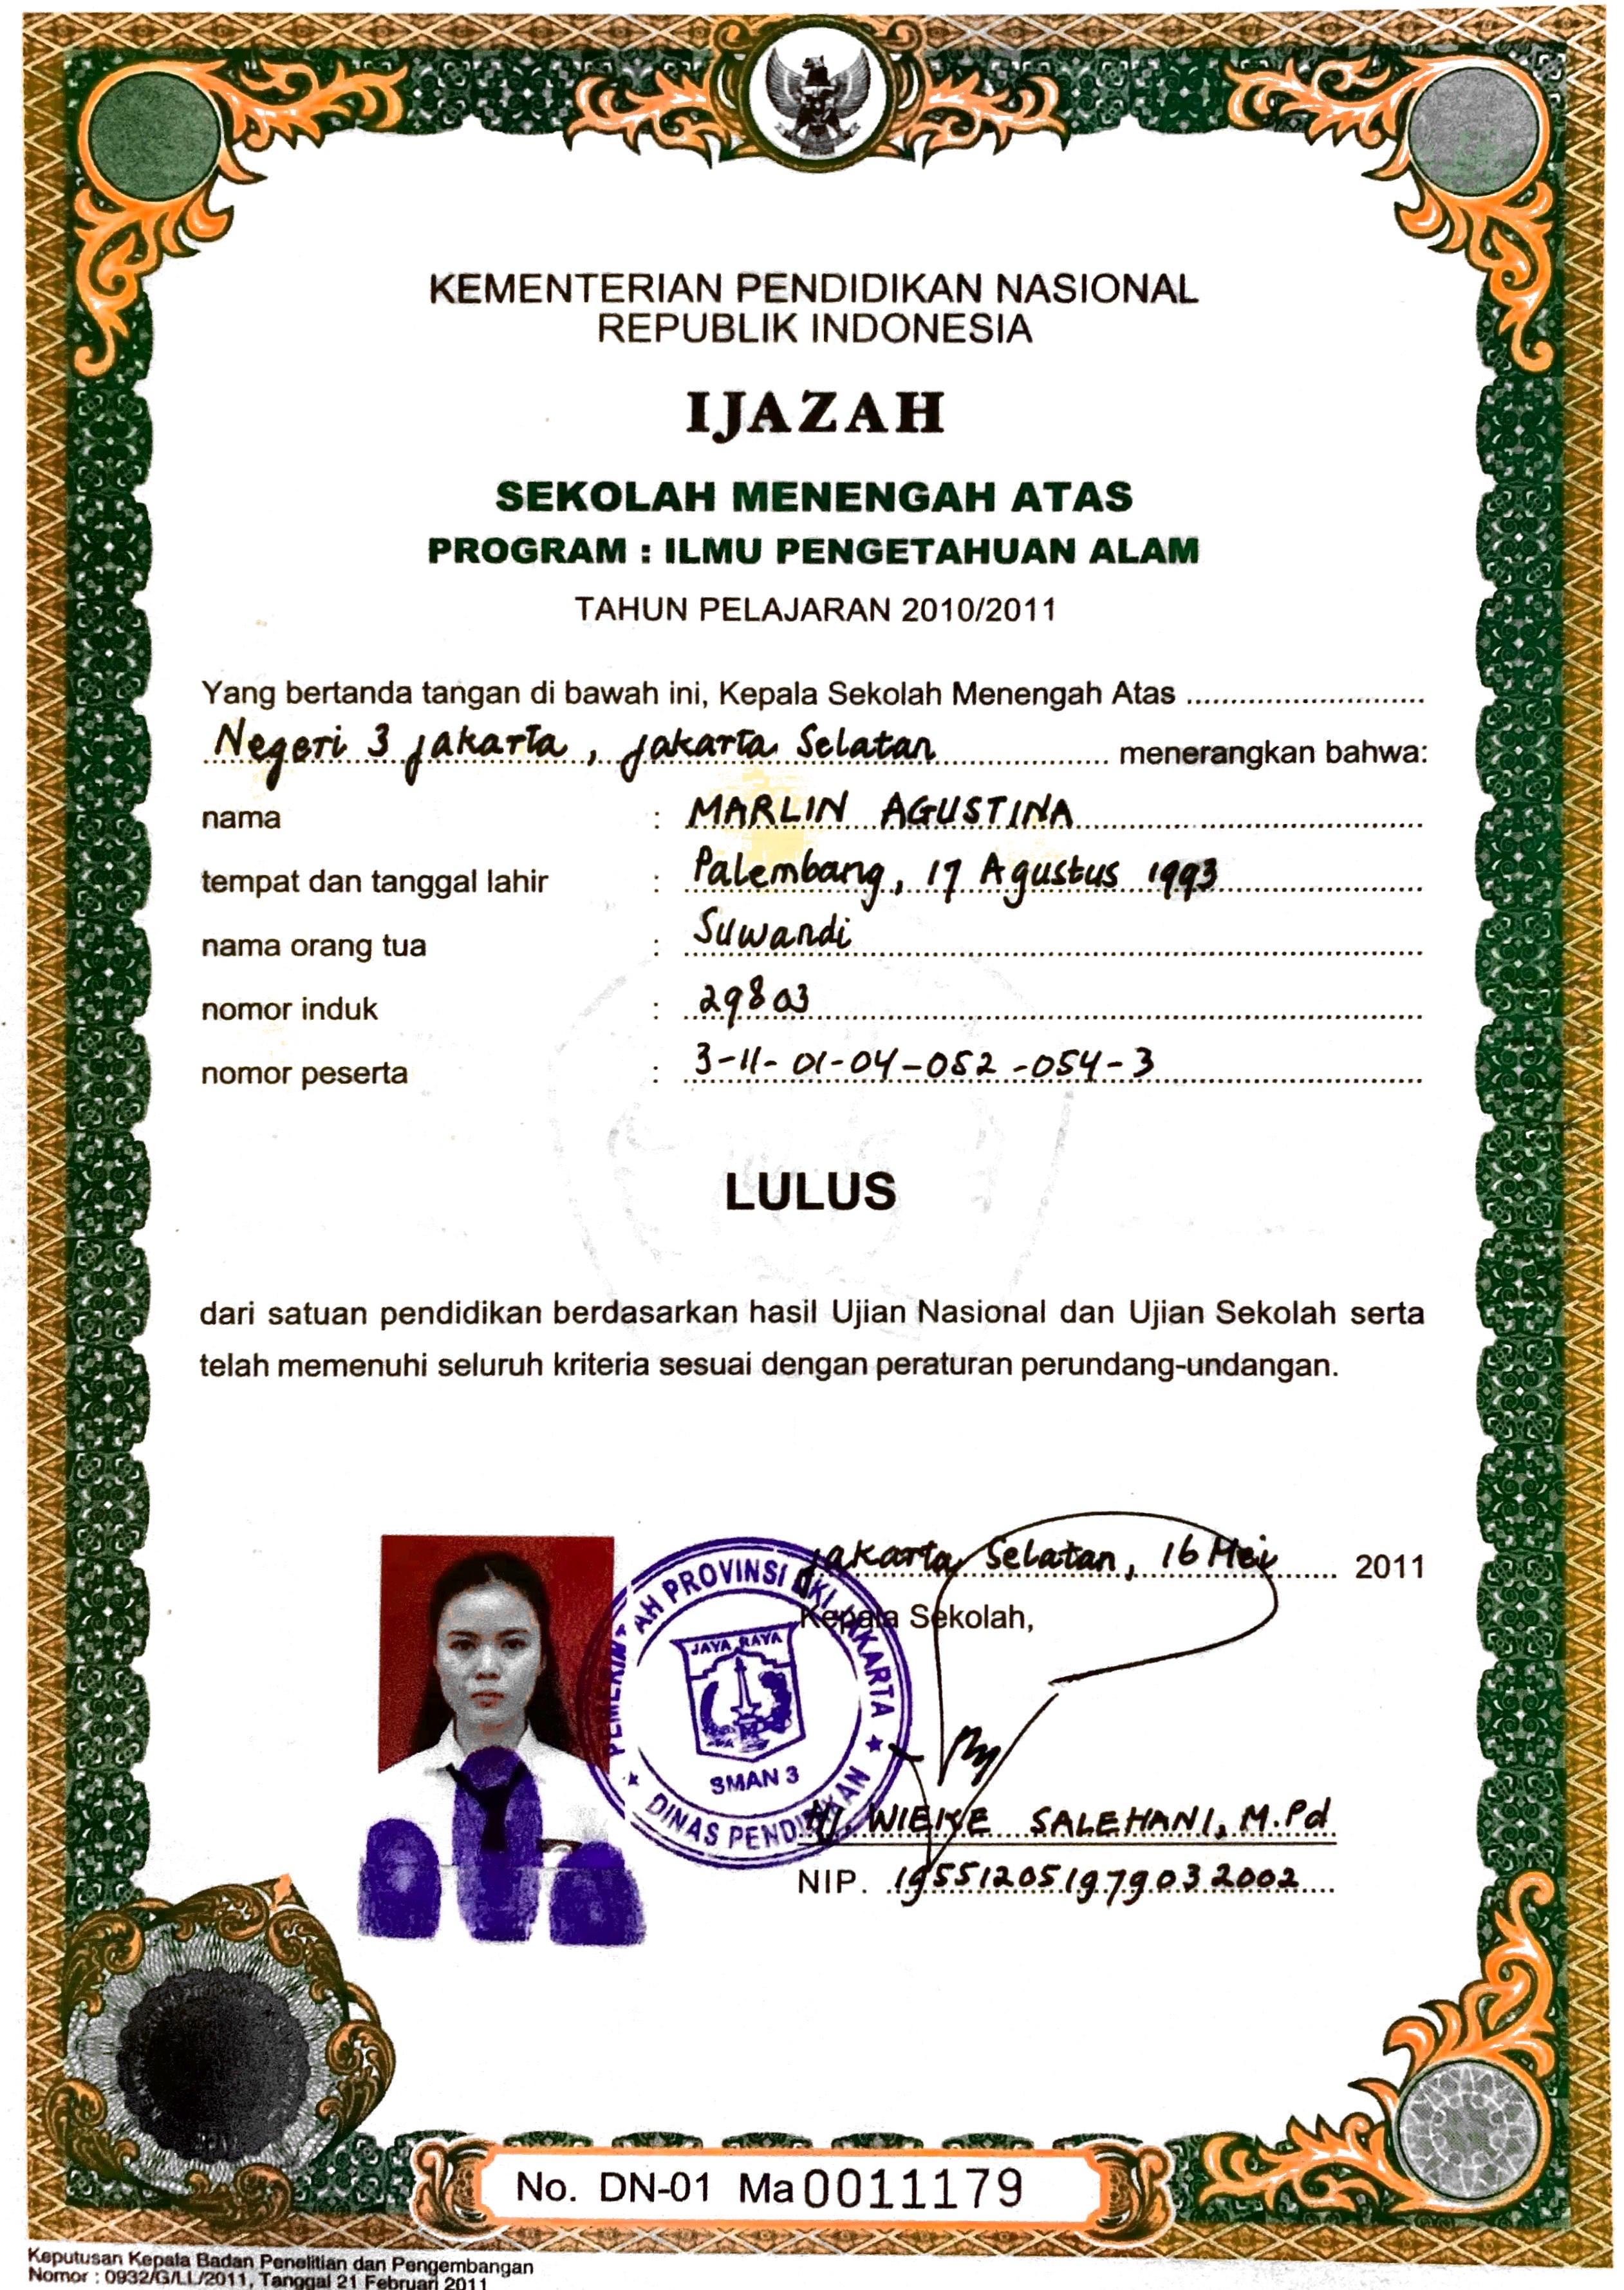 KEMENTERIAN PENDIDIKAN NASIONAL
REPUBLIK INDONESIA
IJAZAH
SEKOLAH MENENGAH ATAS
PROGRAM : ILMU PENGETAHUAN ALAM
TAHUN PELAJARAN 2010/2011
Yang bertanda tangan di bawah ini, Kepala Sekolah Menengah Atas ...........................
Negeri 3 jakarta, jakarta Selatan menerangkan bahwa:
nama : MARLIN AGUSTINA
tempat dan tanggal lahir : Palembang, 17 Agustus 1993
nama orang tua : Suwandi
nomor induk : 29803
nomor peserta : 3-11-01-04-052-054-3
LULUS
dari satuan pendidikan berdasarkan hasil Ujian Nasional dan Ujian Sekolah serta
telah memenuhi seluruh kriteria sesuai dengan peraturan perundang-undangan.
jakarta Selatan, 16 Mei 2011
Kepala Sekolah,
PEMERINTAH PROVINSI DKI JAKARTA
JAYA RAYA
SMAN 3
DINAS PENDIDIKAN
Hj. WIEKE SALEHANI, M.Pd
NIP. 195512051979032002
No. DN-01 Ma 0011179
Keputusan Kepala Badan Penelitian dan Pengembangan
Nomor : 0932/G/LL/2011, Tanggal 21 Februari 2011